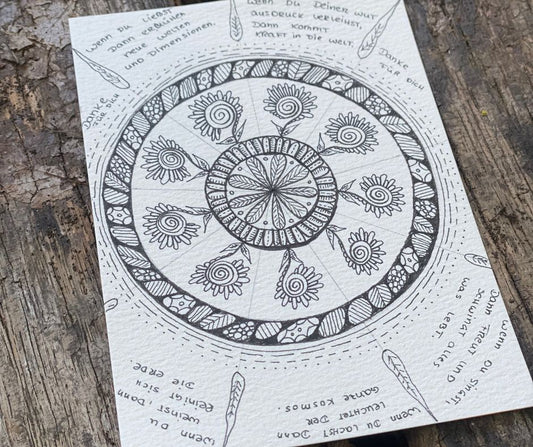 Wenn Du liebst
Dann erblühen
neue Welten
und Dimensionen.
Wenn Du Deiner Wut
Ausdruck verleihst,
Dann kommt
Kraft in die Welt.
Danke
für Dich
Danke
für Dich
Wenn Du singst,
Dann freut und
schwingt alles
was lebt.
Wenn Du lachst Dann
leuchtet Der
ganze Kosmos.
Wenn Du
weinst, Dann
reinigt sich
Die Erde